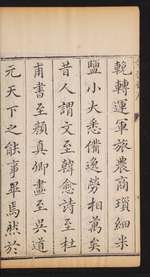 輓轉運軍旅農商瑣細米
鹽小大悉備逸勞相萬矣
昔人謂文至韓愈詩至杜
甫書至顏真卿畫至吳道
元天下之能事畢焉然於